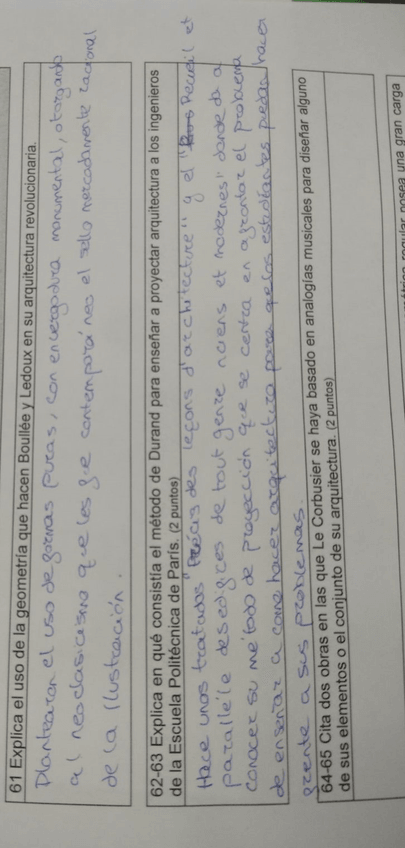 61 Explica el uso de la geometría que hacen Boullée y Ledoux en su arquitectura revolucionaria.
Plantearon el uso de formas puras, con envergadura monumental, otorgando
al neoclasicismo que les fue contemporáneo el sello marcadamente racional
de la Ilustración.
62-63 Explica en qué consistía el método de Durand para enseñar a proyectar arquitectura a los ingenieros
de la Escuela Politécnica de París. (2 puntos)
Hace unos tratados "Précis des leçons d'architecture" y el " Recueil et
paralléle des edifices de tout genre et modernes" donde da a
conocer su método de proyección que se centra en afrontar el problema
de enseñar a como hacer arquitectura para que los estudiantes puedan hacer
frente a sus problemas.
64-65 Cita dos obras en las que Le Corbusier se haya basado en analogías musicales para diseñar alguno
de sus elementos o el conjunto de su arquitectura. (2 puntos)
posea una gran carga